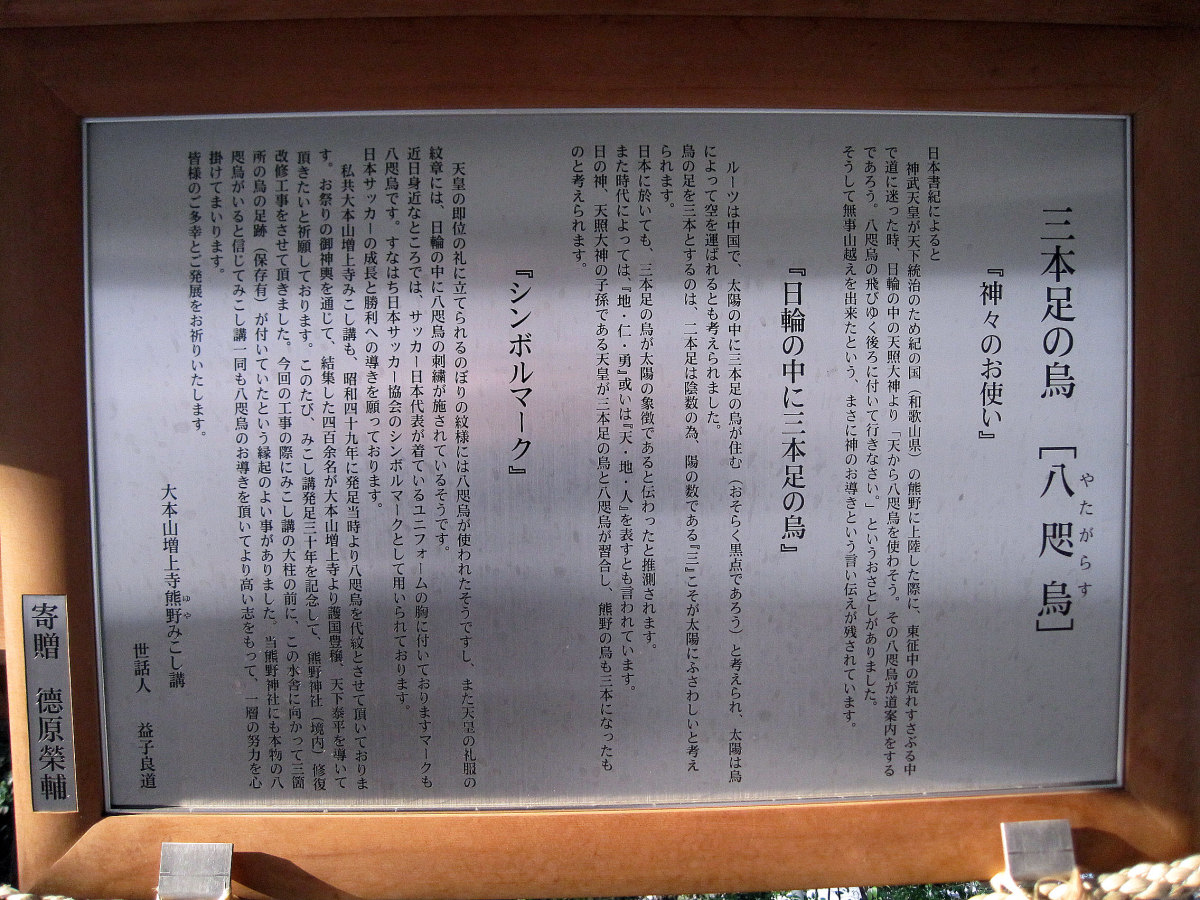 三本足の烏　［八咫烏］
やたがらす
『神々のお使い』
日本書紀によると
神武天皇が天下統治のため紀の国（和歌山県）の熊野に上陸した際に、東征中の荒れすさぶる中
で道に迷った時、日輪の中の天照大神より「天から八咫烏を使わそう。その八咫烏が道案内をする
であろう。八咫烏の飛びゆく後ろに付いて行きなさい。」というおさとしがありました。
そうして無事山越えを出来たという、まさに神のお導きという言い伝えが残されています。
『日輪の中に三本足の烏』
ルーツは中国で、太陽の中に三本足の烏が住む（おそらく黒点であろう）と考えられ、太陽は烏
によって空を運ばれるとも考えられました。
烏の足を三本とするのは、二本足は陰数の為、陽の数である『三』こそが太陽にふさわしいと考え
られます。
日本に於いても、三本足の烏が太陽の象徴であると伝わったと推測されます。
また時代によっては『地・仁・勇』或いは『天・地・人』を表すとも言われています。
日の神、天照大神の子孫である天皇が三本足の烏と八咫烏が習合し、熊野の烏も三本になったも
のと考えられます。
『シンボルマーク』
天皇の即位の礼に立てられるのぼりの紋様には八咫烏が使われたそうですし、また天皇の礼服の
紋章には、日輪の中に八咫烏の刺繍が施されているそうです。
近日身近なところでは、サッカー日本代表が着ているユニフォームの胸に付いておりますマークも
八咫烏です。すなはち日本サッカー協会のシンボルマークとして用いられております。
日本サッカーの成長と勝利への導きを願っております。
私共大本山増上寺みこし講も、昭和四十九年に発足当時より八咫烏を代紋とさせて頂いておりま
す。お祭りの御神輿を通じて、結集した四百余名が大本山増上寺より護国豊穣、天下泰平を導いて
頂きたいと祈願しております。このたび、みこし講発足三十年を記念して、熊野神社（境内）修復
改修工事をさせて頂きました。今回の工事の際にみこし講の大柱の前に、この水舎に向かって三箇
所の烏の足跡（保存有）が付いていたという縁起のよい事がありました。当熊野神社にも本物の八
咫烏がいると信じてみこし講一同も八咫烏のお導きを頂いてより高い志をもって、一層の努力を心
掛けてまいります。
皆様のご多幸とご発展をお祈りいたします。
大本山増上寺熊野みこし講
ゆや
世話人　益子良道
寄贈　德原榮輔